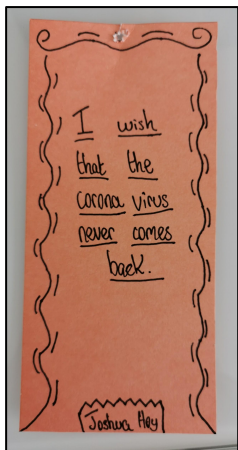 I wish
that the
corona virus
never comes
back.
Joshua Hey